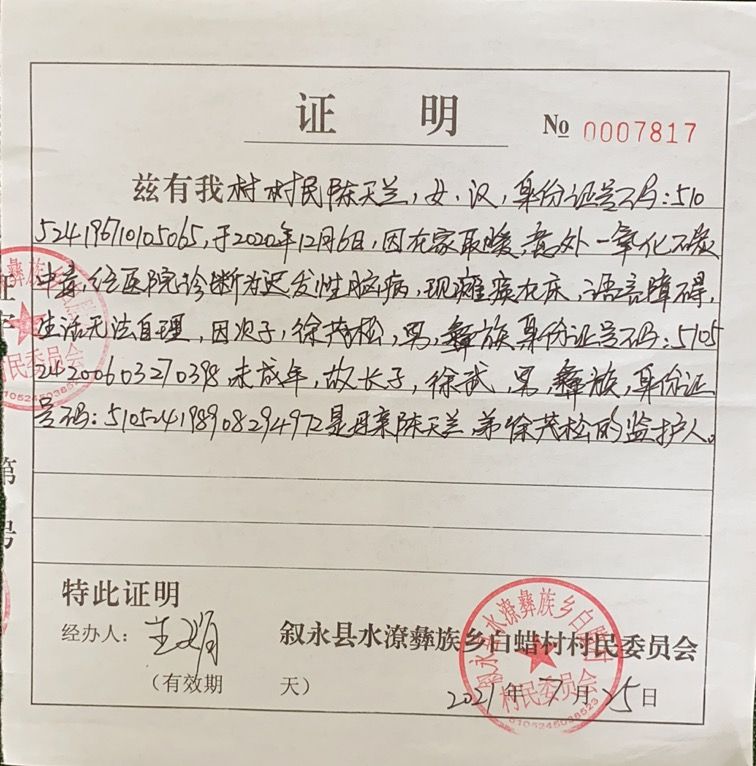 证 明
№ 0007817
兹有我村村民陈天兰，女，汉，身份证号码：510
524196710105065，于2020年12月6日，因在家取暖，意外一氧化碳
中毒，经医院诊断为迟发性脑病，现瘫痪在床，语言障碍，
生活无法自理，因次子，徐茂松，男，彝族身份证号码：5105
24200603270398未成年，故长子，徐武，男，彝族，身份证
号码：510524198908294972是母亲陈天兰、弟徐茂松的监护人。
特此证明
经办人：
叙永县水潦彝族乡白蜡村村民委员会
（有效期 天）
2021年7月25日
叙永县水潦彝族乡白蜡村
村民委员会
第
号